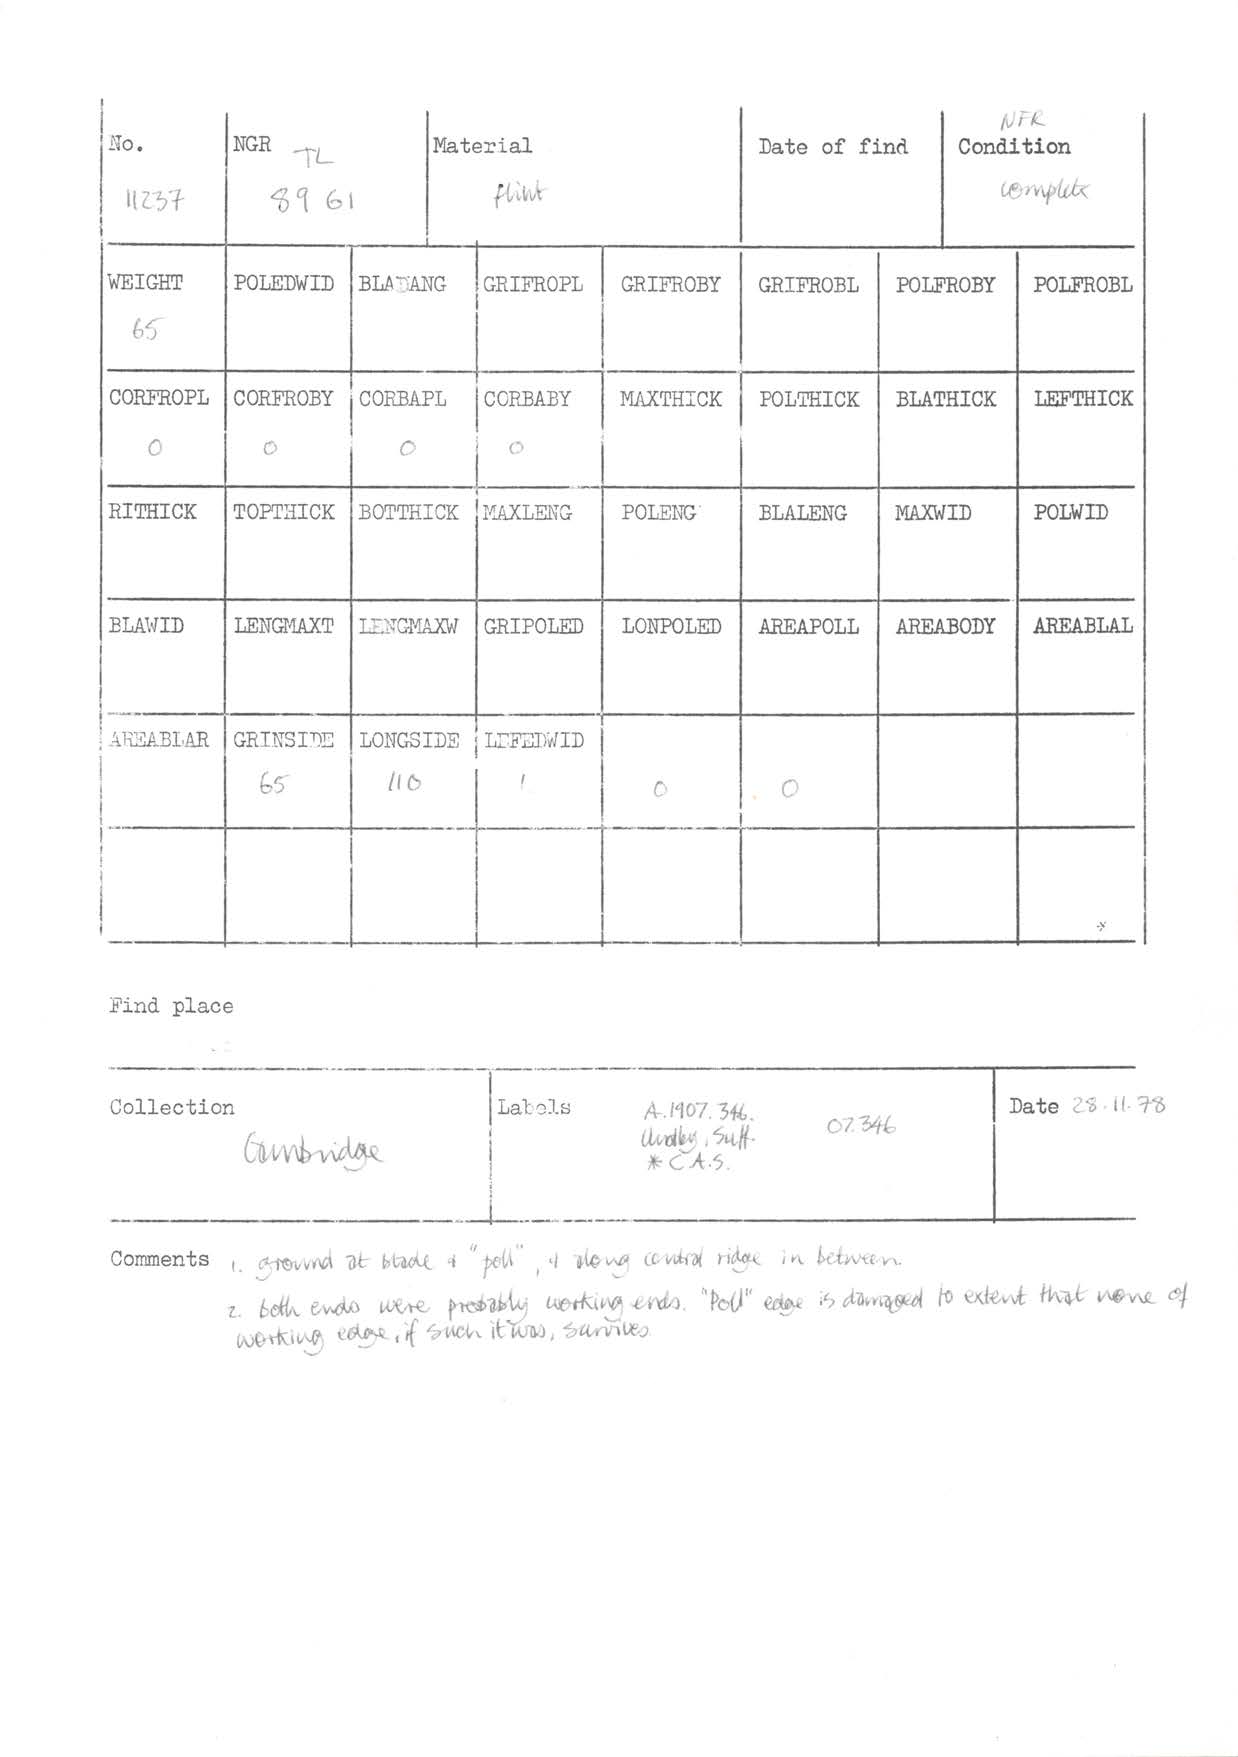 No. NGR TL Material Date of find NFR Condition
11237 89 61 flint complete
WEIGHT POLEDWID BLADANG GRIFROPL GRIFROBY GRIFROBL POLFROBY POLFROBL
65
CORFROPL CORFROBY CORBAPL CORBABY MAXTHICK POLTHICK BLATHICK LEFTHICK
0 0 0 0
RITHICK TOPTHICK BOTTHICK MAXLENG POLENG BLALENG MAXWID POLWID
BLAWID LENGMAXT LENGMAXW GRIPOLED LONPOLED AREAPOLL AREABODY AREABLAL
AREABLAR GRINSIDE LONGSIDE LEFEDWID
65 110 1 0 0
Find place
Collection Labels A.1907.346. 07.346 Date 28.11.78
Cambridge Undley, Suff.
* C.A.S.
Comments 1. ground at blade & "poll", & along central ridge in between.
2. both ends were probably working ends. "Poll" edge is damaged to extent that none of
working edge, if such it was, survives.